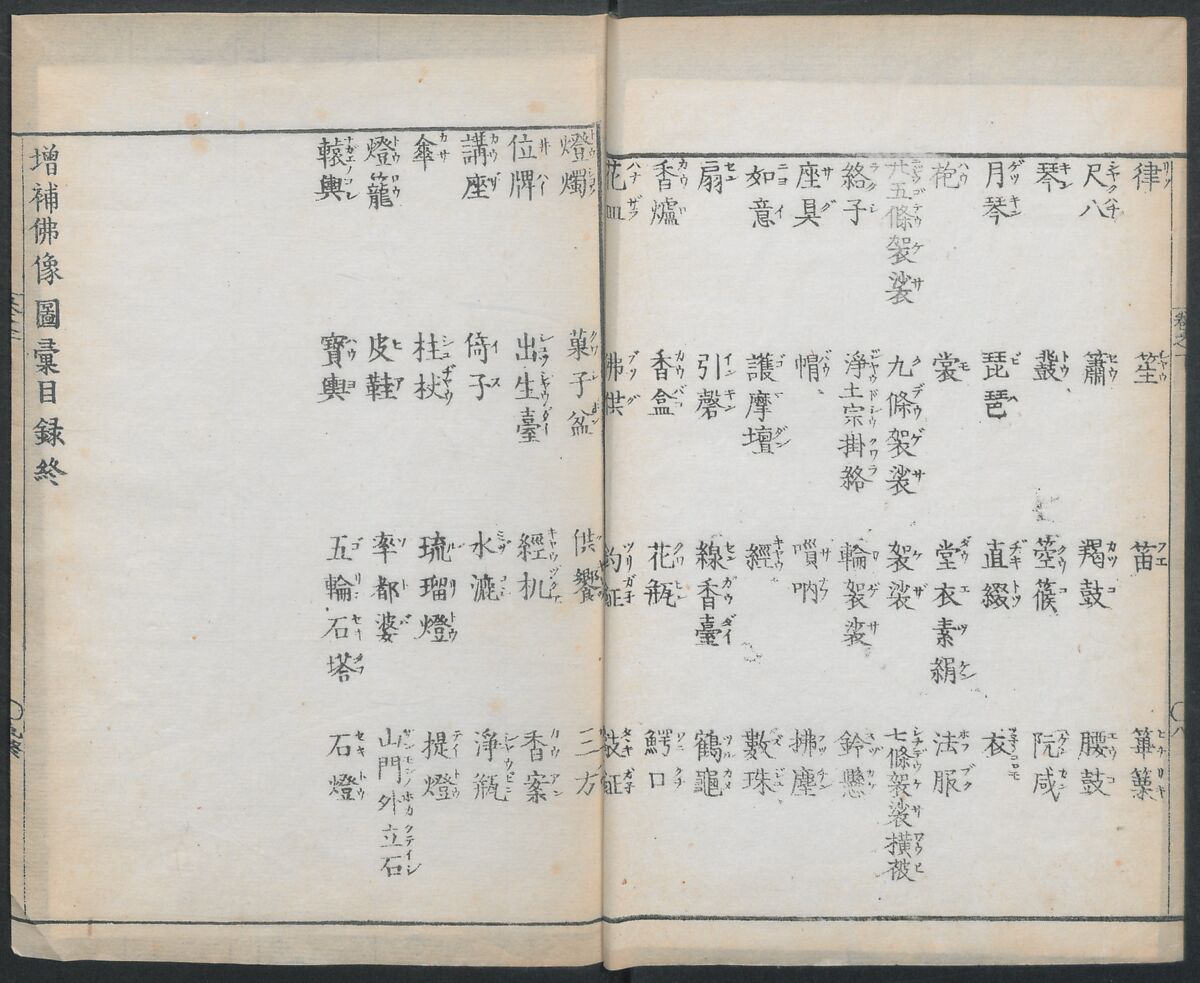 律 笙 笛 篳篥
尺八 簫 羯鼓 腰鼓
琴 鼗 箜篌 阮咸
月琴 琵琶 直綴 衣
袍 裳 堂衣素絹 法服
廿五條袈裟 九條袈裟 袈裟 七條袈裟横被
絡子 淨土宗掛絡 輪袈裟 鈴懸
座具 帽 嗩吶 拂塵
如意 護摩壇 經 數珠
扇 引磬 線香臺 鶴龜
香爐 香盒 花瓶 鰐口
花皿 佛供 釣鉦 鼓鉦
燈燭 菓子盆 供饗 三方
位牌 出生臺 經机 香案
講座 倚子 水漉 淨瓶
傘 柱杖 琉瑠燈 提燈
燈籠 皮鞋 率都婆 山門外立石
轅輿 寶輿 五輪石塔 石燈
增補佛像圖彙目録終